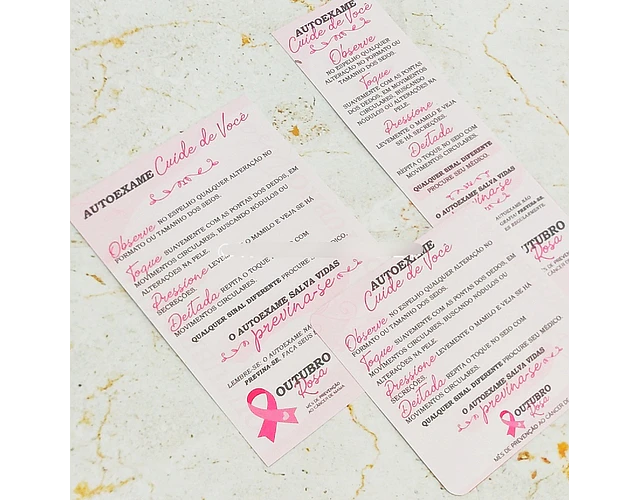 AUTOEXAME Cuide de Você
Observe NO ESPELHO QUALQUER ALTERAÇÃO NO
FORMATO OU TAMANHO DOS SEIOS.
Toque SUAVEMENTE COM AS PONTAS DOS DEDOS, EM
MOVIMENTOS CIRCULARES, BUSCANDO NÓDULOS OU
ALTERAÇÕES NA PELE.
Pressione LEVEMENTE O MAMILO E VEJA SE HÁ
SECREÇÕES.
Deitada REPITA O TOQUE COM
MOVIMENTOS CIRCULARES.
QUALQUER SINAL DIFERENTE PROCURE MÉDICO.
O AUTOEXAME SALVA VIDAS
previna-se
LEMBRE-SE: O AUTOEXAME
PREVINA-SE. FAÇA SEUS
OUTUBRO
Rosa
MÊS DE PREVENÇÃO
AO CÂNCER DE MAMA
AUTOEXAME
Cuide de Você
Observe
NO ESPELHO QUALQUER
ALTERAÇÃO NO FORMATO OU
TAMANHO DOS SEIOS.
Toque
SUAVEMENTE COM AS PONTAS
DOS DEDOS, EM MOVIMENTOS
CIRCULARES, BUSCANDO
NÓDULOS OU ALTERAÇÕES NA
PELE.
Pressione
LEVEMENTE O MAMILO E VEJA
SE HÁ SECREÇÕES.
Deitada
REPITA O TOQUE NO SEIO COM
MOVIMENTOS CIRCULARES.
QUALQUER SINAL DIFERENTE
PROCURE SEU MÉDICO.
O AUTOEXAME SALVA VIDAS
previna-se
AUTOEXAME NÃO
REGULARMENTE.
OUTUBRO
Rosa
MÊS DE PREVENÇÃO
AO CÂNCER DE
AUTOEXAME
Cuide de Você
Observe NO ESPELHO QUALQUER ALTERAÇÃO NO
FORMATO OU TAMANHO DOS SEIOS.
Toque SUAVEMENTE COM AS PONTAS DOS DEDOS, EM
MOVIMENTOS CIRCULARES, BUSCANDO NÓDULOS OU
ALTERAÇÕES NA PELE.
Pressione LEVEMENTE O MAMILO E VEJA SE HÁ
SECREÇÕES.
Deitada REPITA O TOQUE NO SEIO COM
MOVIMENTOS CIRCULARES.
QUALQUER SINAL DIFERENTE PROCURE SEU MÉDICO.
O AUTOEXAME SALVA VIDAS
previna-se
OUTUBRO
Rosa
MÊS DE PREVENÇÃO AO CÂNCER DE